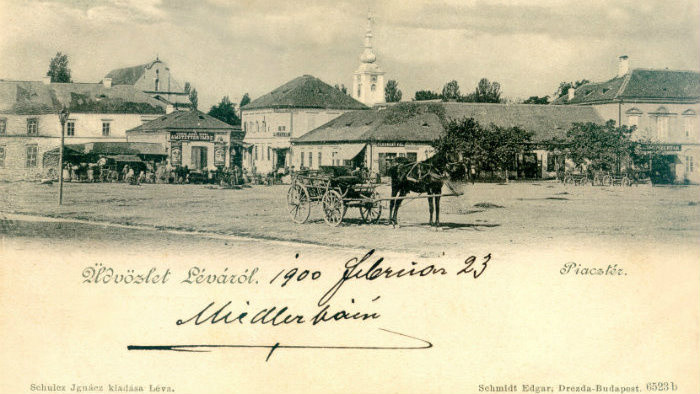 Üdvözlet Léváról. 1900 Februar 23
Piacztér.
Schulcz Jgnácz kiadása Léva.
Schmidt Edgar; Drezda-Budapest. 6523 b